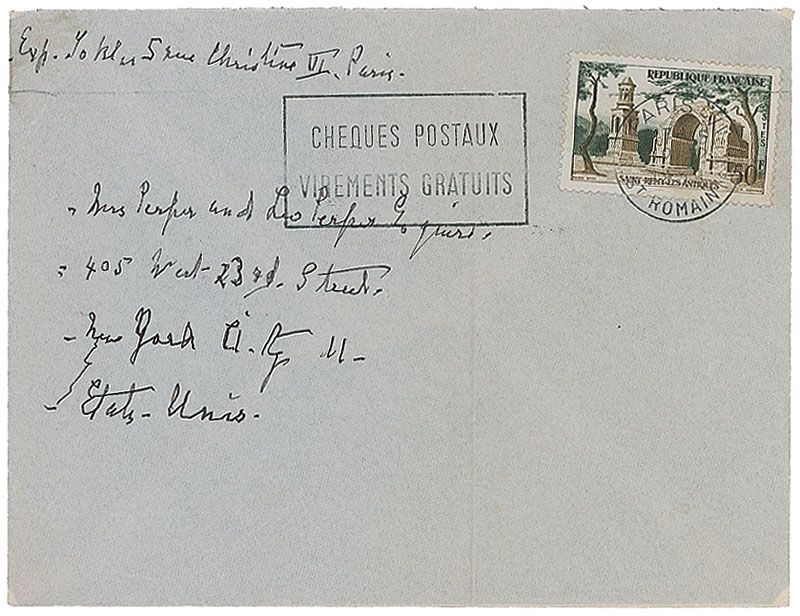 Exp. Toklas 5 rue Christine VI. Paris.
REPUBLIQUE FRANÇAISE
POSTES
SAINT-REMY LES ANTIQUES
50F
PARIS
ST ROMAIN
CHEQUES POSTAUX
VIREMENTS GRATUITS
- Mrs Perper and Leo Perper Esquire.
- 405 West 23rd. Street.
- New York City 11-
- États-Unis.